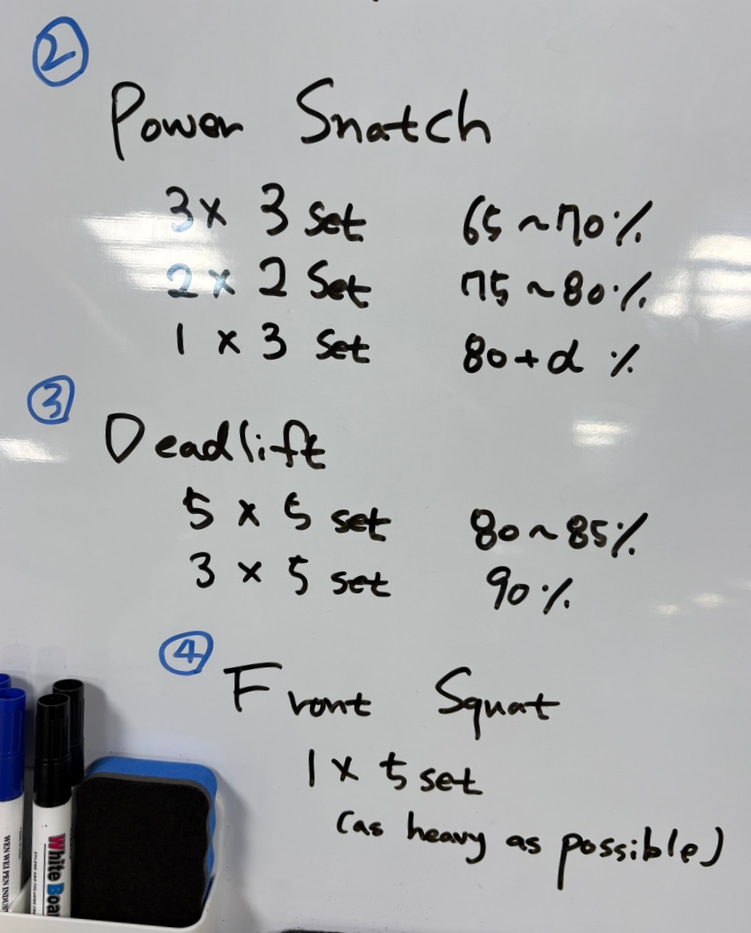 ②
Power Snatch
3 x 3 set 65 ~ 70%
2 x 2 Set 75 ~ 80%
1 x 3 Set 80 + d %
③
Deadlift
5 x 5 set 80 ~ 85%
3 x 5 set 90%
④
Front Squat
1 x 5 set
(as heavy as possible)
White Boar
WEN WEI PEN INDUS